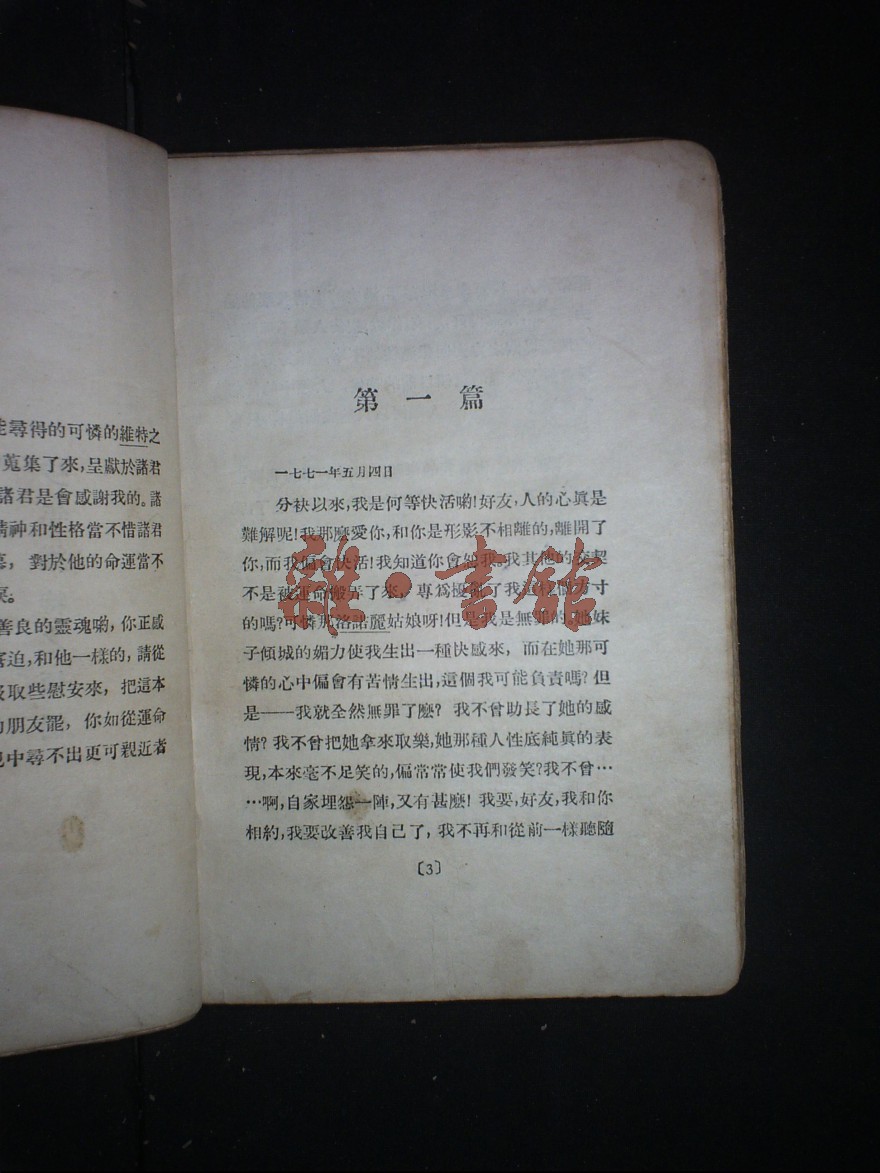 尋得的可憐的維特之
蒐集了來,呈獻於諸君
諸君是會感謝我的。諸
精神和性格當不惜諸君
對於他的命運當不
善良的靈魂喲,你正感
迫,和他一樣的,請從
取些慰安來,把這本
朋友罷,你如從運命
中尋不出更可親近者
第一篇
一七七一年五月四日
分袂以來,我是何等快活喲!好友,人的心眞是
難解呢!我那麼愛你,和你是形影不相離的,離開了
你,而我偏會快活!我知道你會恕我。我其他的
不是被運命搬弄了來,專爲擾亂了我這種方寸
的嗎?可憐那洛諾麗姑娘呀!但是我是無罪的,她妹
子傾城的媚力使我生出一種快感來,而在她那可
憐的心中偏會有苦情生出,這個我可能負責嗎?但
是——我就全然無罪了麽?我不曾助長了她的感
情?我不曾把她拿來取樂,她那種人性底純眞的表
現,本來毫不足笑的,偏常常使我們發笑?我不曾…
…啊,自家埋怨一陣,又有甚麽!我要,好友,我和你
相約,我要改善我自己了,我不再和從前一樣聽隨
〔3〕
雜·書館